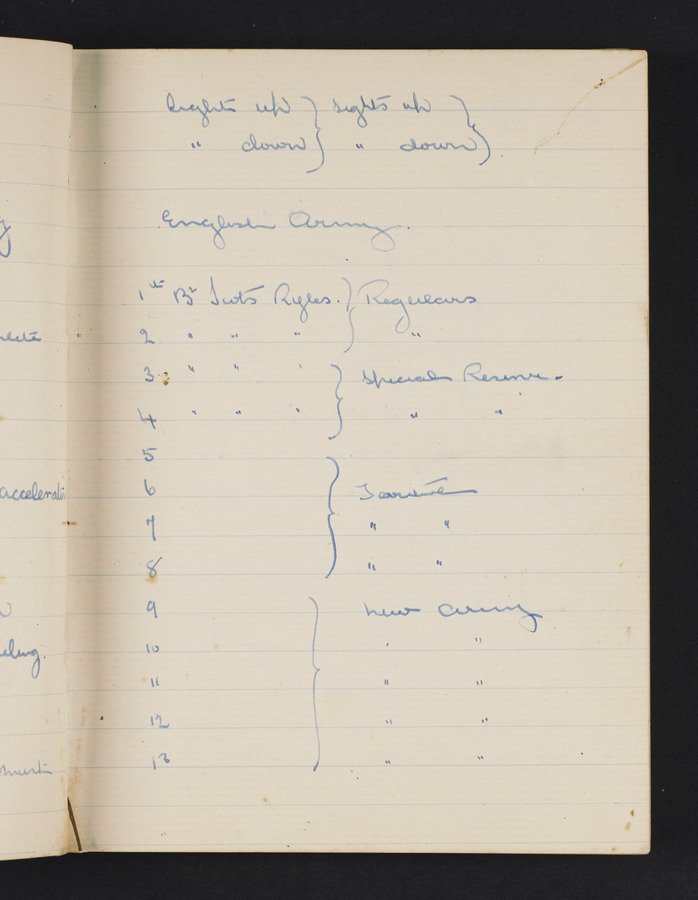 lights up } sights up }
" down } " down }
English Army.
1st Bn Scots Ryles. } Regulars
2 " " " } "
3 " " " } Special Reserve -
4 " " " } " "
5
6
7 " "
8 " "
9 New Army
10 " "
11 " "
12 " "
13 " "
accelerati